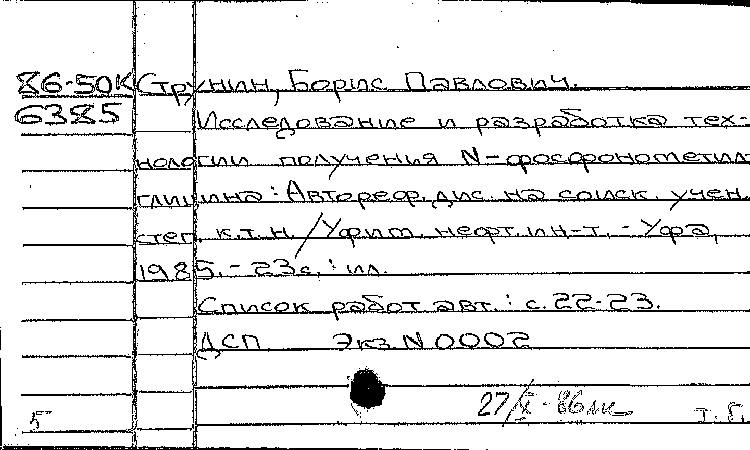 86-50К Струнин, Борис Павлович.
6385 Исследование и разработка тех-
нологии получения N-фосфонометил-
глицина: Автореф. дис. на соиск. учен.
степ. к.т.н. / Уфим. нефт. ин-т. - Уфа,
1985. - 23 с. : ил.
Список работ авт.: с. 22-23.
ДСП Экз. N 0002
27/X-86
5 Т. Г.